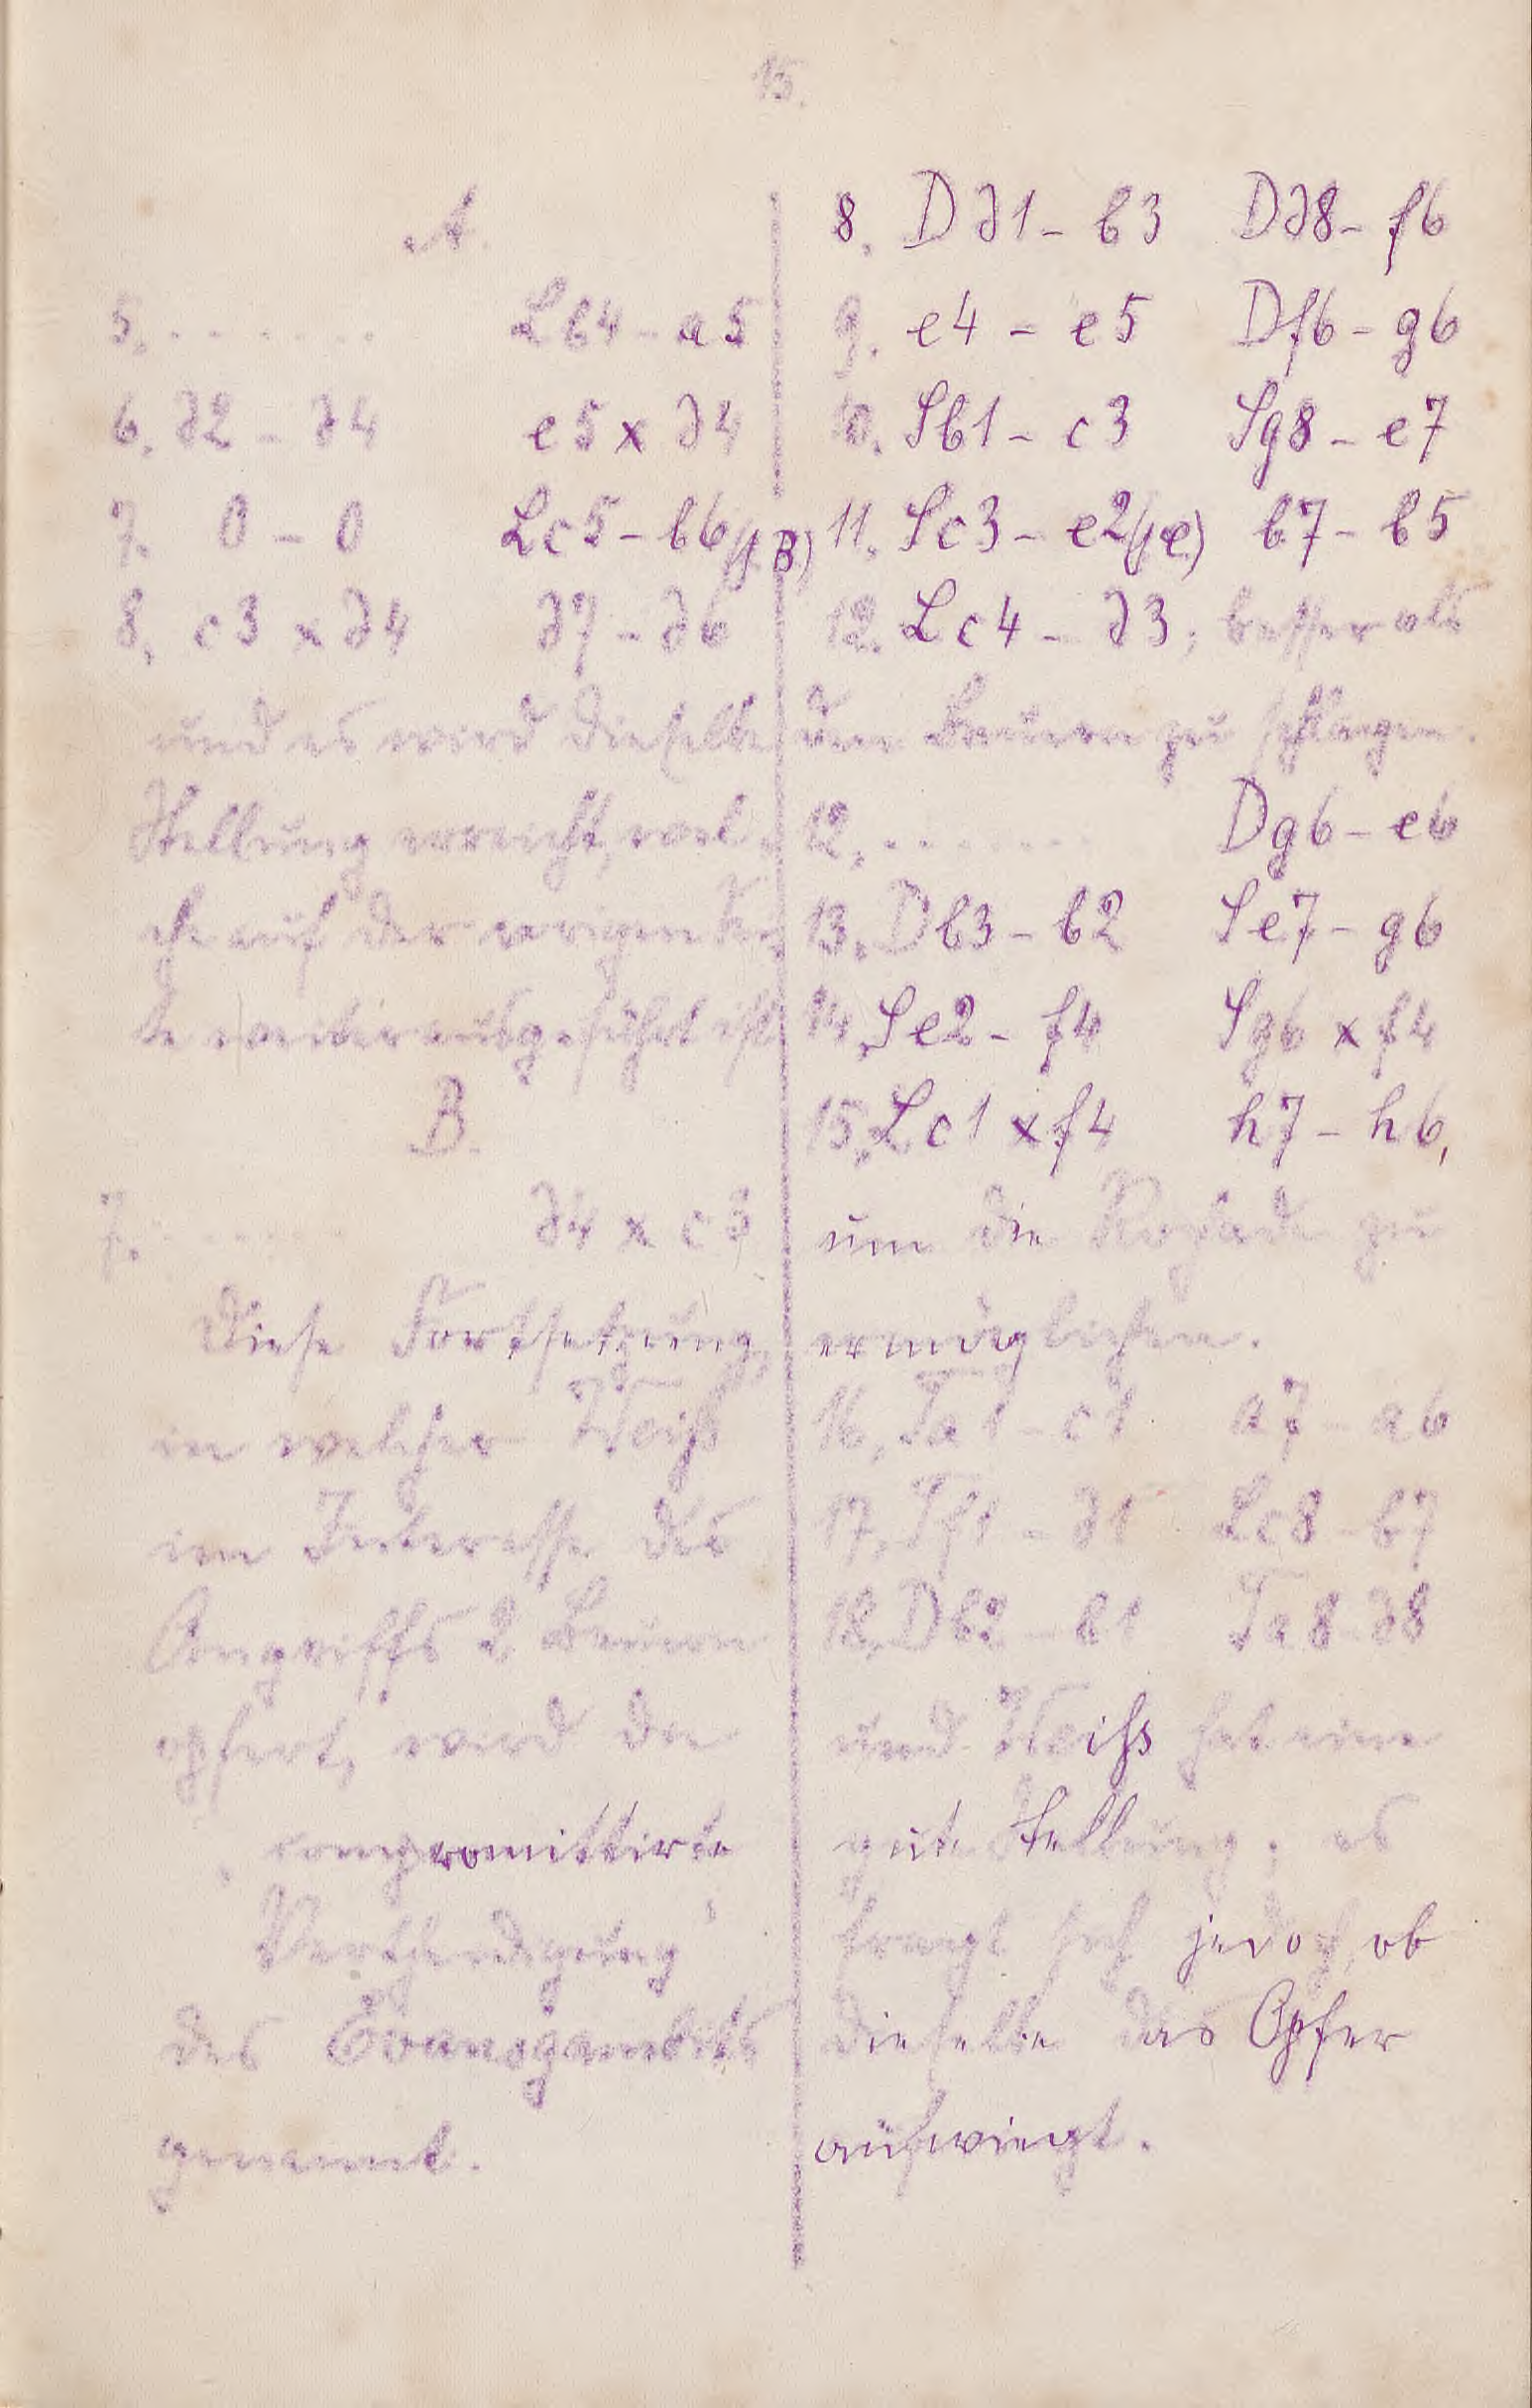 15.
A.
5. . . . . . . . Lb4 - a5
6. d2 - d4 e5 x d4
7. 0 - 0 Lc5 - b6 (/B)
8. c3 x d4 d7 - d6
und es wird dieselbe
Stellung erreicht, wel-
che auf der vorigen Sei-
te weiter ausgeführt ist
B.
7. . . . . . . d4 x c3
Diese Fortsetzung,
in welcher Weiß
im Interesse des
Angriffs 2 Bauern
opfert, wird die
„compromittirte
Vertheidigung“
des Evansgambits
genannt.
8. Dd1 - b3 Dd8 - f6
9. e4 - e5 Df6 - g6
10. Sb1 - c3 Sg8 - e7
11. Sc3 - e2 (/C) b7 - b5
12. Lc4 - d3, besser als
den Bauern zu schlagen.
12. . . . . . . . Dg6 - e6
13. Db3 - b2 Se7 - g6
14. Se2 - f4 Sg6 x f4
15. Lc1 x f4 h7 - h6,
um die Rochade zu
ermöglichen.
16. Ta1 - c1 a7 - a6
17. Tf1 - d1 Lc8 - b7
18. Db2 - b1 Ta8 - d8
und Weiss hat eine
gute Stellung; es
fragt sich jedoch, ob
dieselbe das Opfer
aufwiegt.